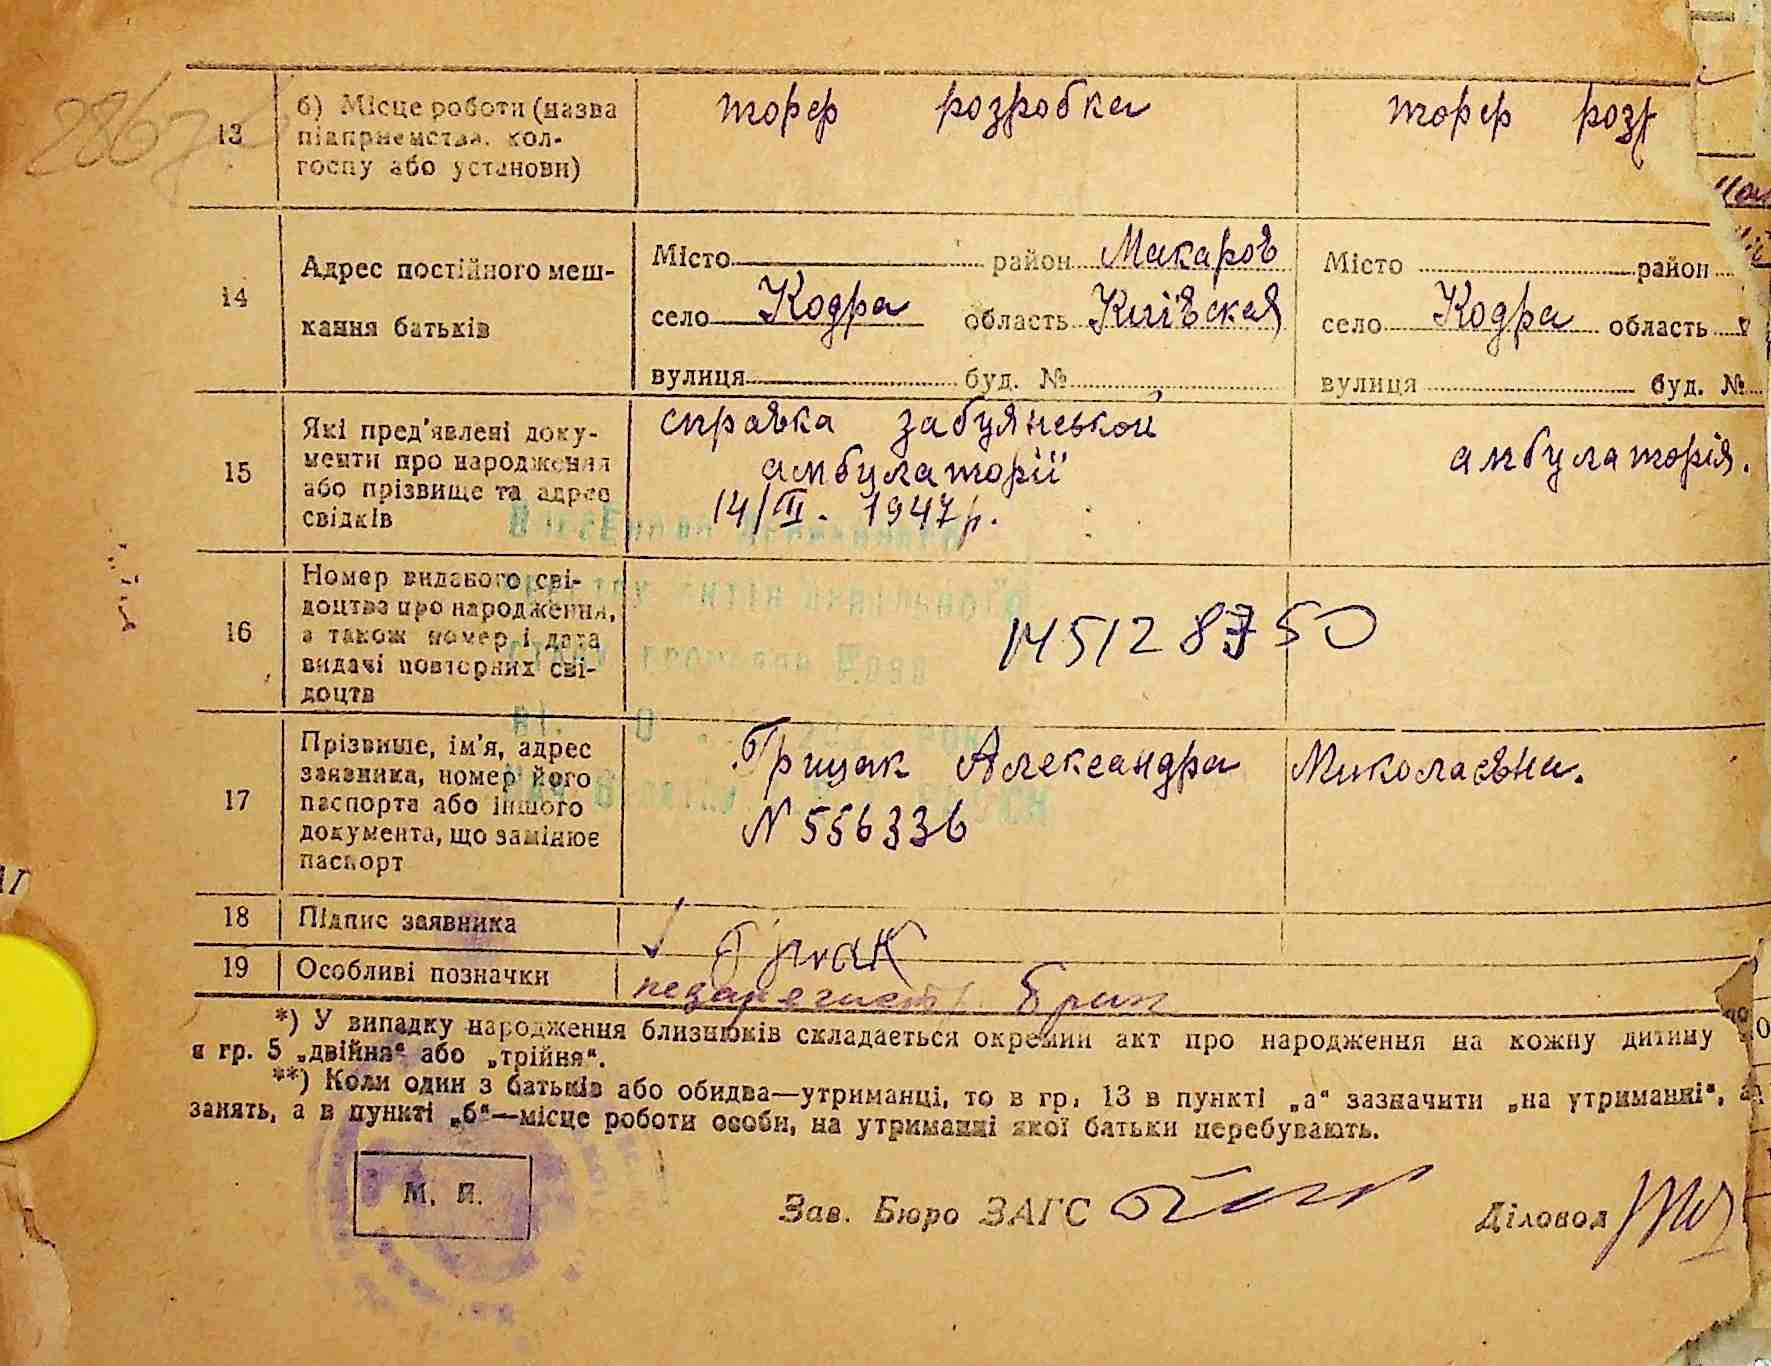 13
б) Місце роботи (назва
підприємства, кол-
госпу або установи)
торф розробка
торф розр
14
Адрес постійного меш-
кання батьків
Місто район Макаров
село Кодра область Київская
вулиця буд. №
Місто район
село Кодра область
вулиця буд. №
15
Які пред'явлені доку-
менти про народження
або прізвище та адрес
свідків
справка забуянської
амбулаторії
14/III. 1947 р.
амбулаторія.
16
Номер виданого сві-
доцтва про народження,
а також номер і дата
видачі повторних сві-
доцтв
145128750
17
Прізвище, ім'я, адрес
заявника, номер його
паспорта або іншого
документа, що замінює
паспорт
Грицак Александра Миколаєвна.
N 556336
18
Підпис заявника
19
Особливі позначки
*) У випадку народження близнюків складається окремий акт про народження на кожну дитину
в гр. 5 „двійня“ або „трійня“.
**) Коли один з батьків або обидва—утриманці, то в гр. 13 в пункті „а“ зазначити „на утриманні“, а
занять, а в пункті „б“—місце роботи особи, на утриманні якої батьки перебувають.
М. П.
Зав. Бюро ЗАГС
Діловод